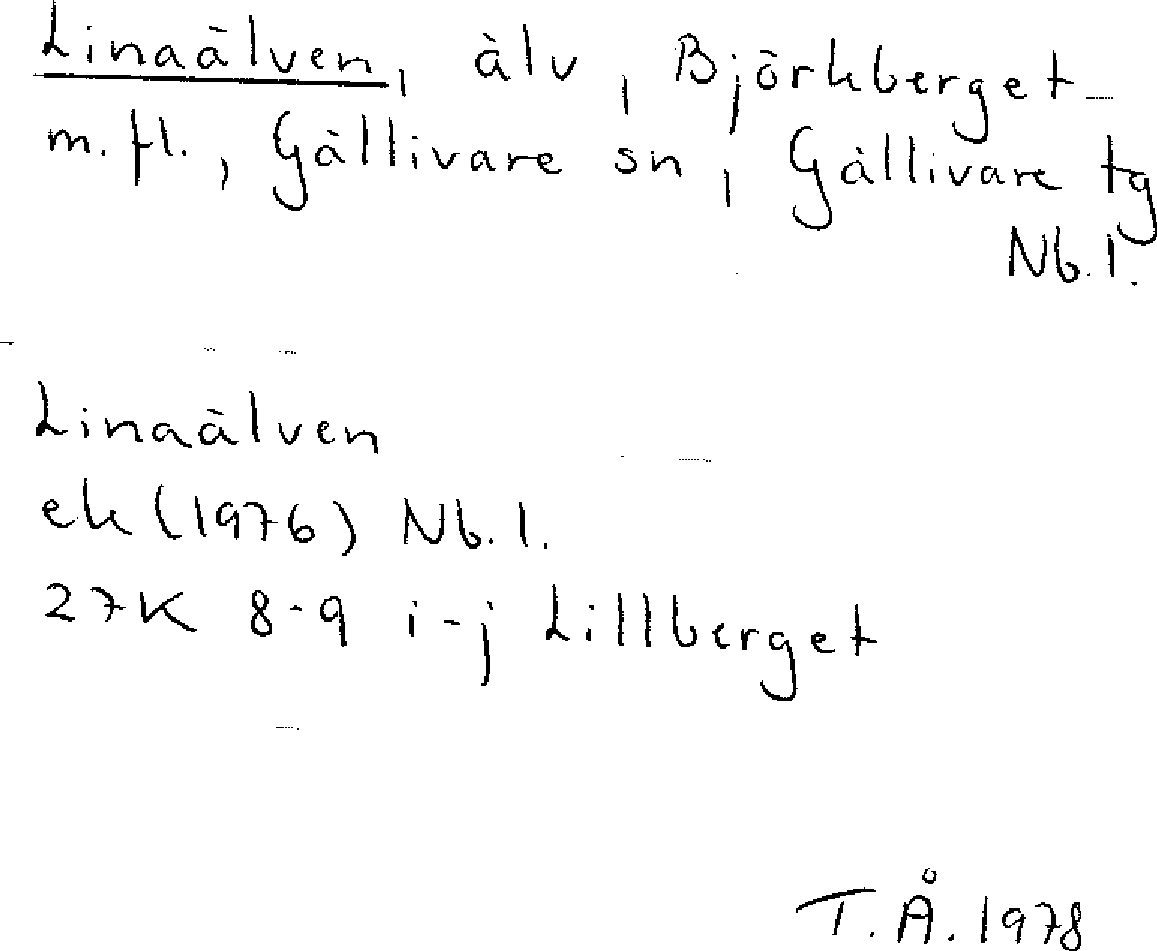 Linaälven, älv, Björkberget
m. fl., Gällivare sn, Gällivare tg
Nb. l.
Linaälven
ek (1976) Nb. l.
27K 8-9 i-j Lillberget
T. Å. 1978